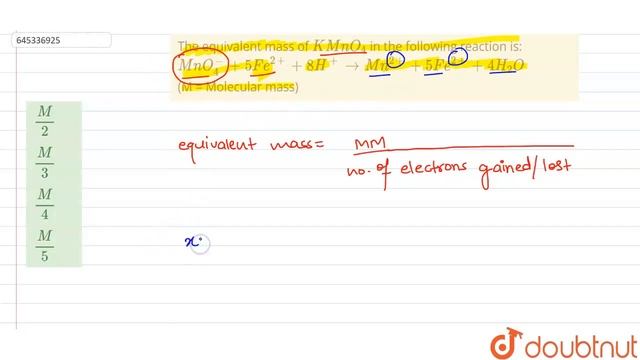 645336925
The equivalent mass of KMnO₄ in the following reaction is:
MnO₄⁻ + 5Fe²⁺ + 8H⁺ → Mn²⁺ + 5Fe²⁺ + 4H₂O
(M = Molecular mass)
M/2
M/3
M/4
M/5
equivalent mass = MM
no. of electrons gained/lost
x
doubtnut